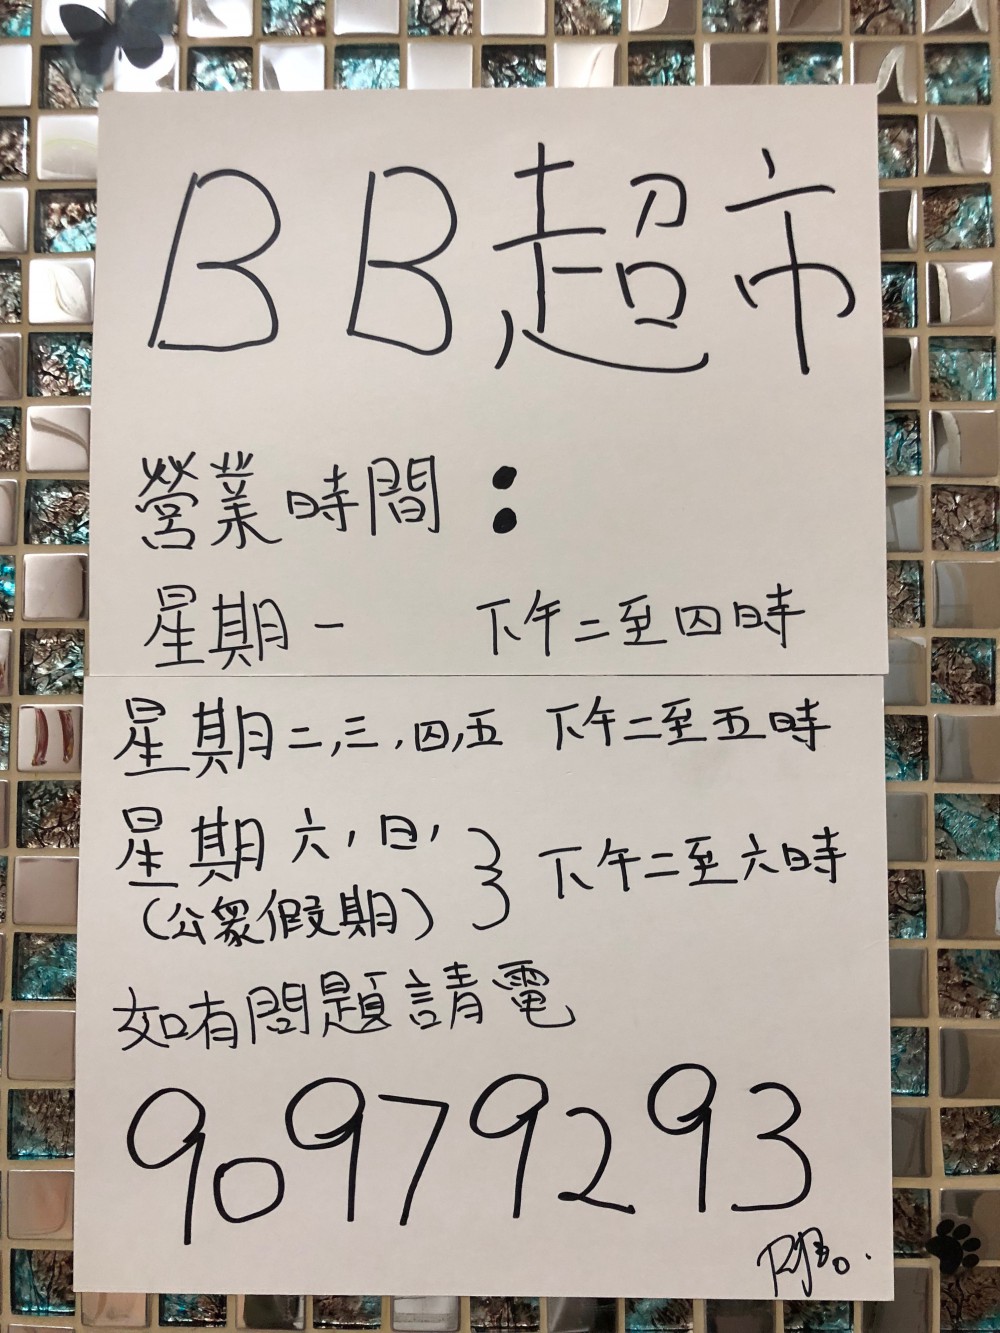 BB超市
營業時間：
星期一 下午二至四時
星期二,三,四,五 下午二至五時
星期六,日,
(公眾假期) } 下午二至六時
如有問題請電
90979293